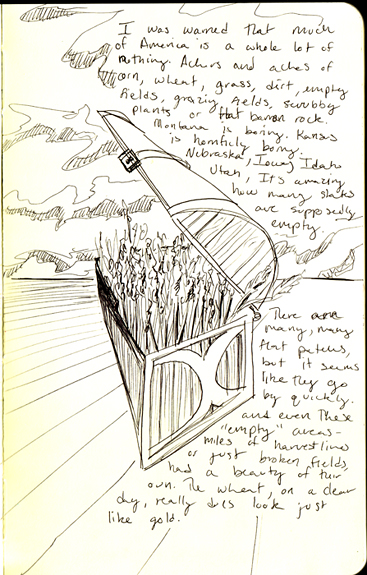 I was warned that much
of America is a whole lot of
nothing. Achers and aches of
corn, wheat, grass, dirt, empty
fields, grazing fields, scrubby
plants or flat barren rock.
Montana is boring. Kansas
is horrifically boring.
Nebraska, Iowa, Idaho
Utah, It's amazing
how many states
are supposedly
empty.
There are
many, many
flat patches,
but it seems
like they go
by quickly.
and even these
"empty" areas-
miles of harvest lines
or just broken fields,
had a beauty of their
own. The wheat, on a clear
day, really does look just
like gold.